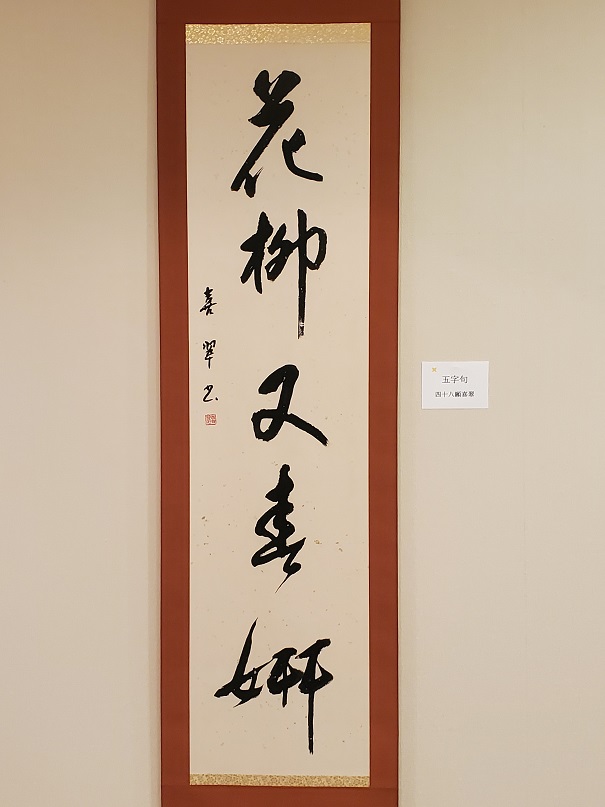 花柳又春妍
喜翠書
五字句
四十八願喜翠